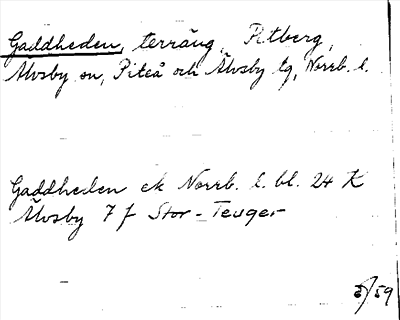 Gaddheden, terräng, Pitberg,
Älvsby sn, Piteå och Älvsby tg, Norrb. l.
Gaddheden ek Norrb. l. bl. 24 K
Älvsby 7 f Stor-Teuger
5/59